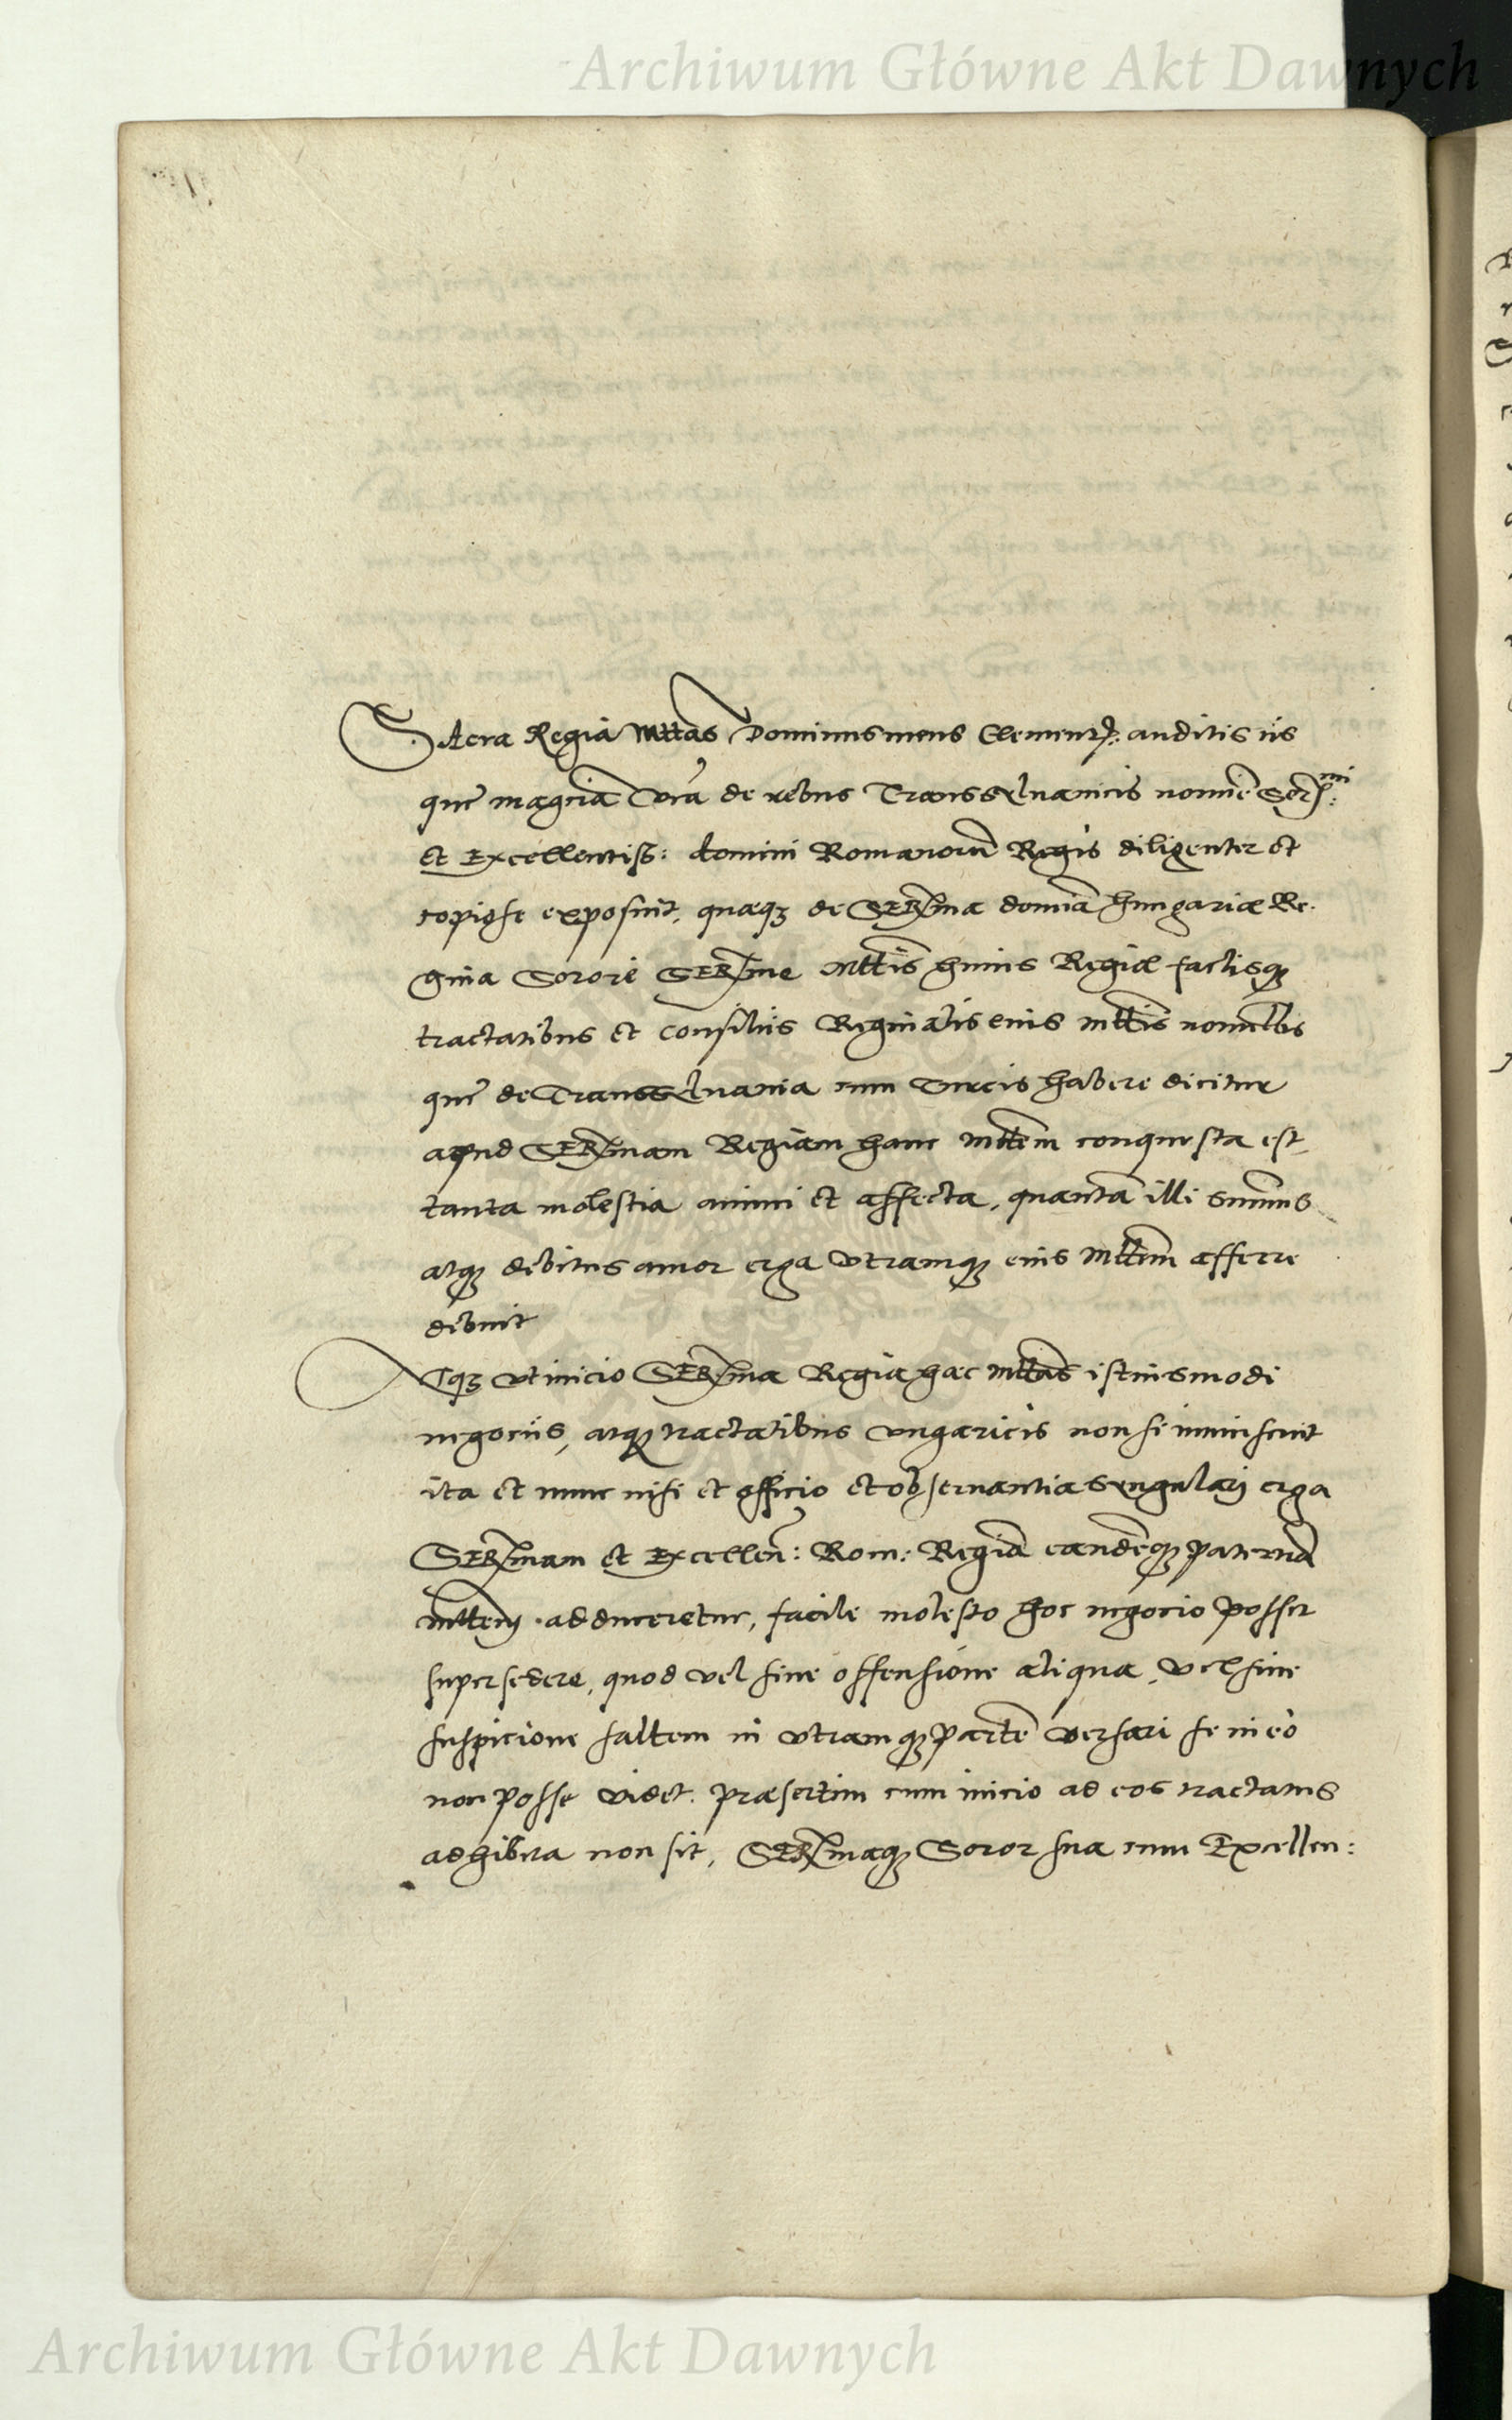 Archiwum Główne Akt Dawnych
Sacra Regia Mttas Dominus meus Clementis: auditis iis
que magcia Vra de rebus Transsylvanicis nomine Sermi:
et Excellentiss: domini Romanorum Regis diligenter et
copiose exposuit, quaeq3 de SERma domina Hungariae Re.
gina Sorore SERme Mttis huius Regiae factisq3
tractatibus et consiliis Reginalis eius Mttis nonnullis
que de Transsylvania cum Turcis habere dicitur
apud SERmam Regiam hanc Mttem conquesta est,
tanta molestia animi et affecta, quantam illi summus
atq3 debitus amor erga utramq3 eius Mttem afferre
debuit
Atq3 ut inicio SERma Regia hac Mttas istiusmodi
negociis, atq3 tractatibus ungaricis non se immiscuit
ita et nunc nisi et officio et observantia syngulari erga
SERmam et Excellen: Rom: Regiam eandemq3 paternam
Mttem adduceretur, facile molesto hoc negocio posset
supersedere, quod vel sine offensione aliqua, vel sine
suspicione saltem in utramq3 partem versari se in eo
non posse videt. praesertim cum inicio ad eos tractatus
adhibita non sit, SERmaq3 Soror sua cum Excellen:
Archiwum Główne Akt Dawnych